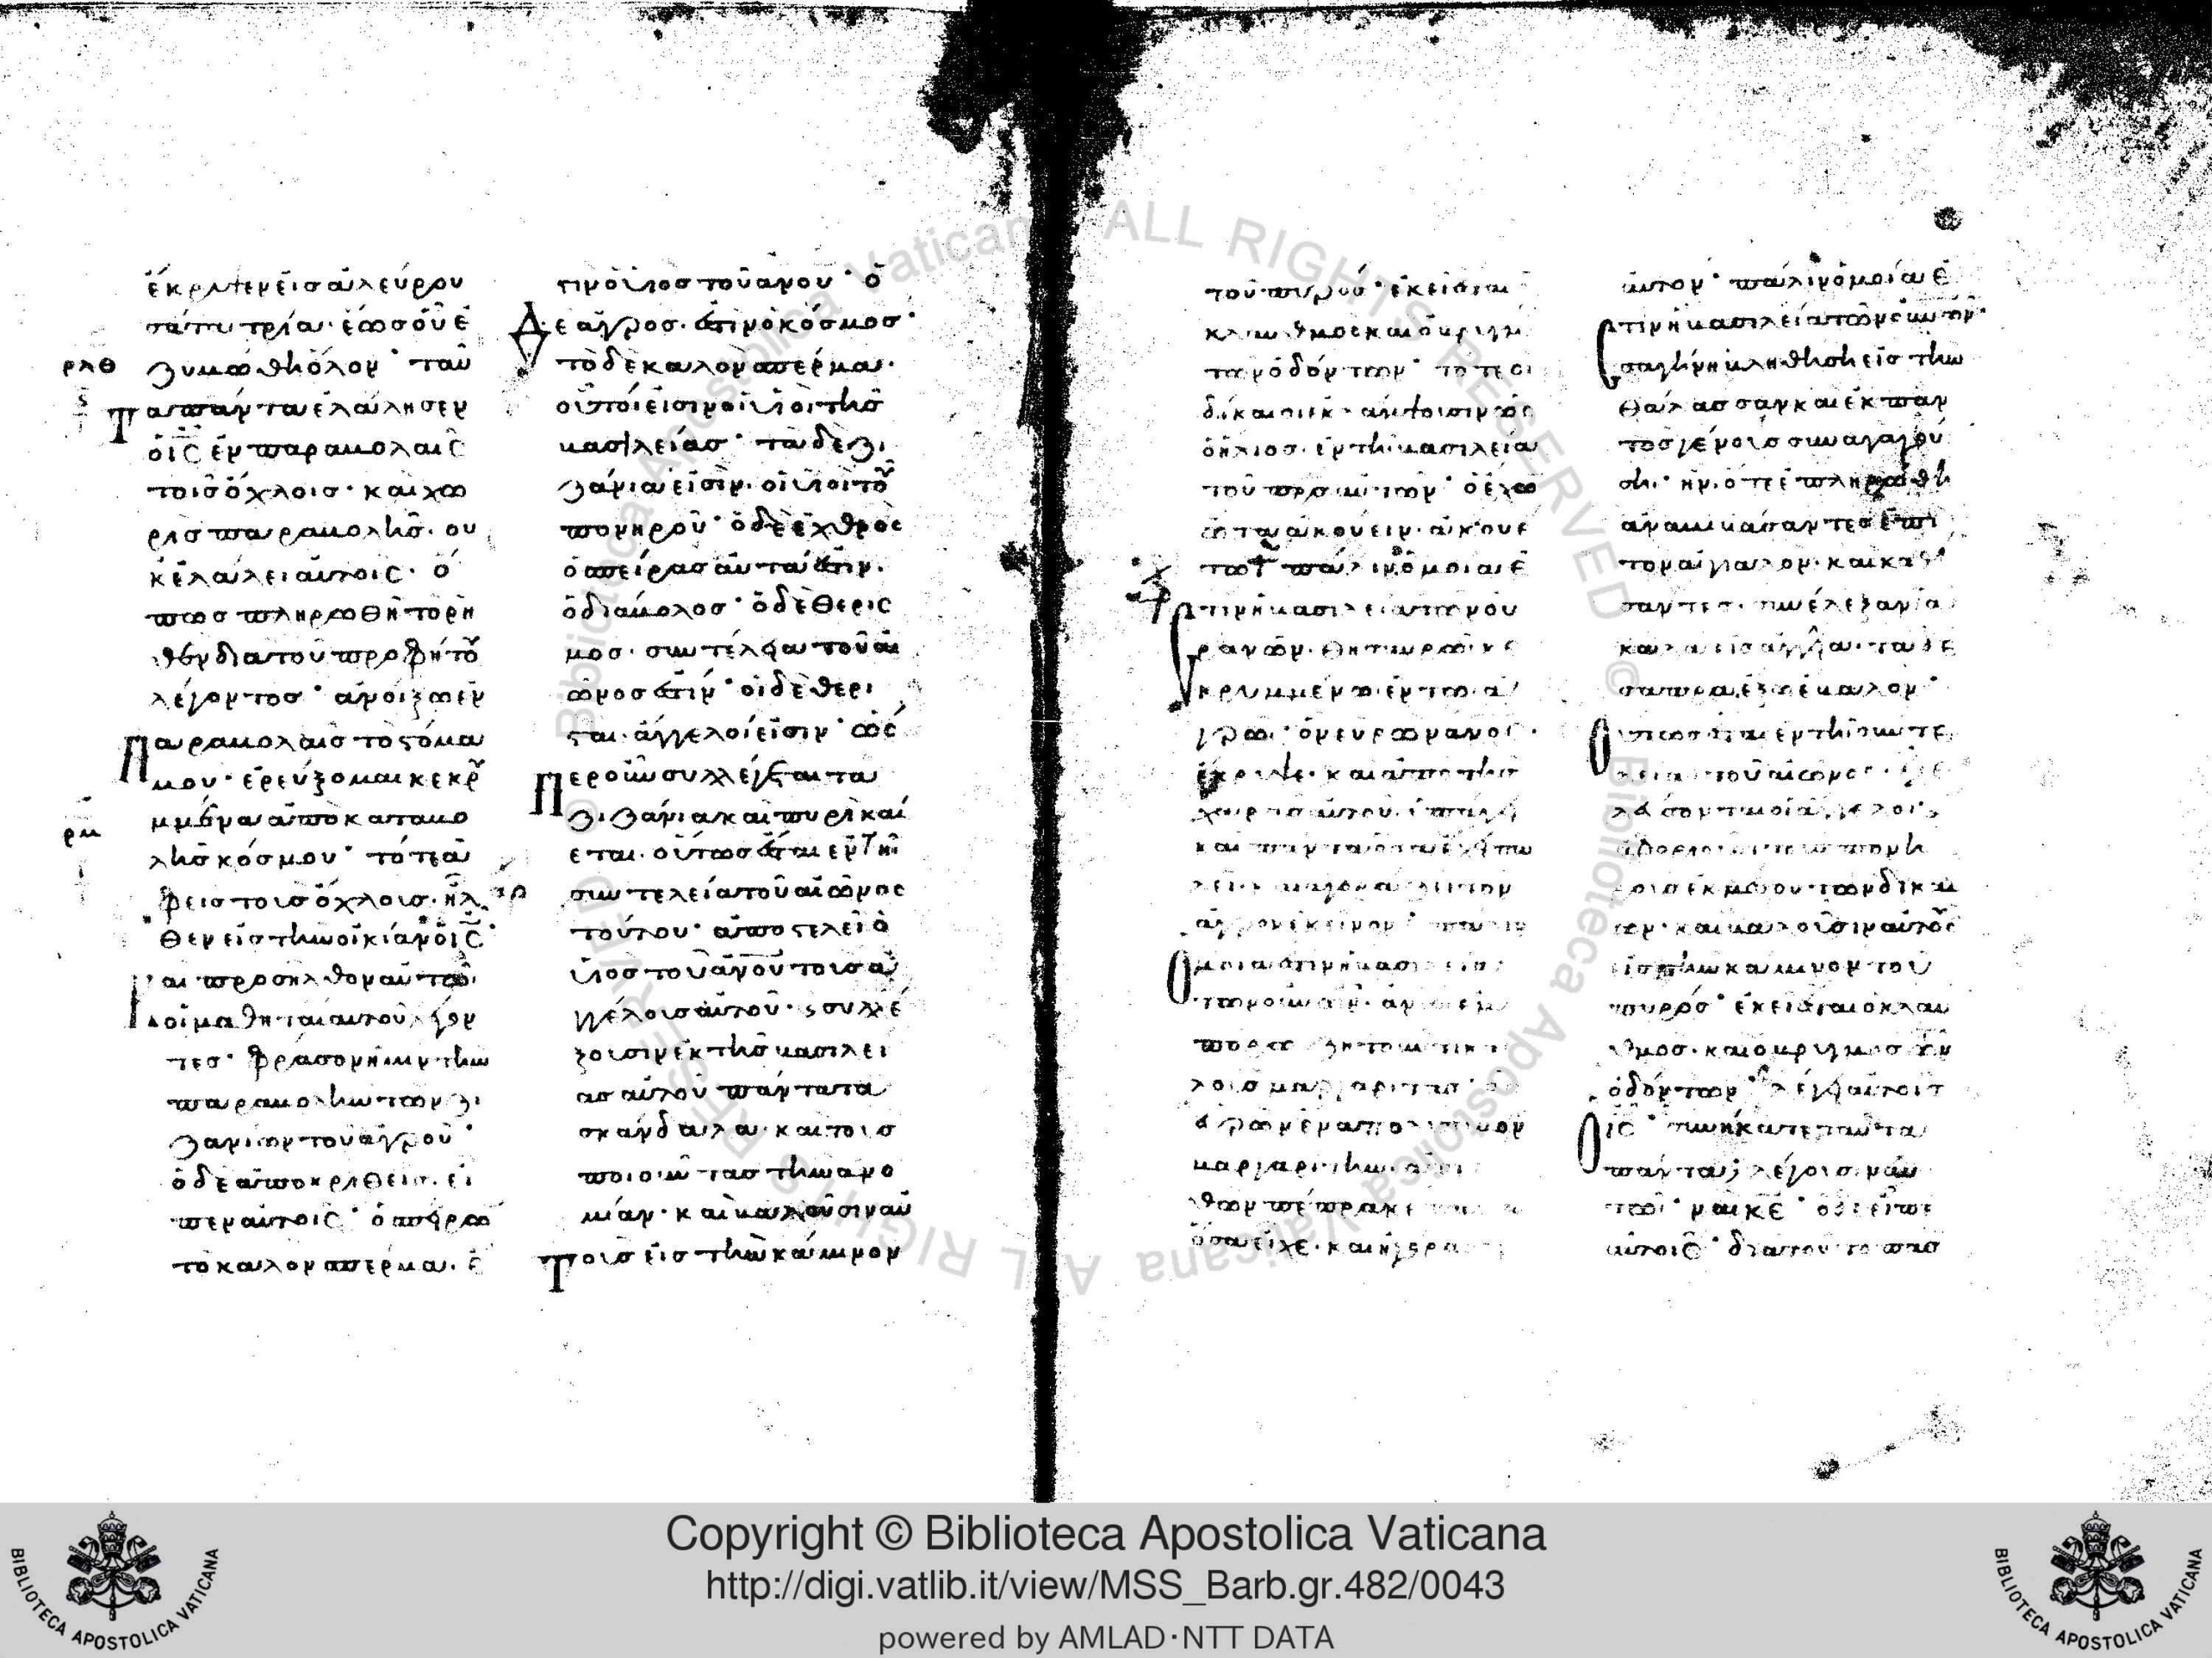 ἔκρυψεν εἰς ἀλεύρου
σάτα τρία· ἕως οὗ ἐ
ρλθ
ζυμώθη ὅλον· ταῦ
τα πάντα ἐλάλησεν
ὁ ις ἐν παραβολαῖς
τοῖς ὄχλοις· καὶ χω
ρὶς παραβολῆς· ου
κ ἐλάλει αὐτοῖς· ὅ
πως πληρωθῆ τὸ ρη
θὲν διὰ τοῦ προφήτου
λέγοντος· ἀνοίξω ἐν
Παραβολαῖς τὸ στόμα
μου· ἐρεύξομαι κεκρυ
ρμ
μμένα ἀπὸ καταβο
λῆς κόσμου· τότε ἀ
φεὶς τοὺς ὄχλους· ἦλ
θεν εἰς τὴν οἰκίαν ὁ ις·
Καὶ προσῆλθον αὐτῶ
οἱ μαθηταὶ αὐτοῦ λέγον
τες· φράσον ἡμῖν τὴν
παραβολὴν τῶν ζι
ζανίων τοῦ ἀγροῦ·
ὁ δὲ ἀποκριθεὶς· εἶ
πεν αὐτοῖς· ὁ σπείρω
τὸ καλὸν σπέρμα· ἐ
τιν ὁ υἱος τοῦ ανου· ὁ
Δὲ ἀγρὸς· ἐστιν ὁ κόσμος·
τὸ δὲ καλὸν σπέρμα·
οὗτοί εἰσιν οἱ υἱοὶ τῆς
βασιλείας· τὰ δὲ ζι
ζάνια εἰσὶν· οἱ υἱοὶ τοῦ
πονηροῦ· ὁ δὲ ἐχθρὸς
ὁ σπείρας αὐτά ἐστιν·
ὁ διάβολος· ὁ δὲ θερις
μὸς· συντέλεια τοῦ αἰ
ωνος ἐστίν· οἱ δὲ θερι
σταὶ· ἄγγελοί εἰσιν· ὥς
Περ οὖν συλλέγεται τὰ
ζιζάνια καὶ πυρὶ καί
εται· οὕτως ἔσται ἐν τῆ
συντελεία τοῦ αἰῶνος
τούτου· ἀποστελεῖ ὁ
υἱὸς τοῦ ανου τοὺς ἀγ
γέλους αὐτοῦ· ϗ συλλέ
ξουσιν ἐκ τῆς βασιλεί
ας αὐτοῦ πάντα τὰ
σκάνδαλα· καὶ τοὺς
ποιοῦντας τὴν ἀνο
μίαν· καὶ βαλοῦσιν αὐ
τοὺς εἰς τὴν κάμινον
τοῦ πυρός· ἐκεῖ ἔσται
ὁ κλαυθμὸς καὶ ὁ βρυγμὸς
τῶν ὀδόντων· τότε οἱ
δίκαιοι ἐκλάμψουσιν ὡς
ὁ ἥλιος· ἐν τῆ βασιλεία
τοῦ πρς αὐτῶν· ὁ ἔχω
ὦτα ἀκούειν· ἀκουέ
τω πάλιν ὁμοία ἐ
στιν ἡ βασιλεία τῶν οὐ
ρανῶν· θησαυρῶ κε
κρυμμένω· ἐν τῶ ἀ
γρῶ· ὃν εὑρὼν ανος·
ἔκρυψε· καὶ ἀπὸ τῆς
χαρᾶς αὐτοῦ· ὑπάγει
καὶ πάντα ὅσα ἔχει πω
λεῖ· καὶ ἀγοράζει τὸν
ἀγρὸν ἐκεῖνον· πάλιν
Ὁμοία ἐστιν ἡ βασιλεία
τῶν οὐνῶν· ανω ἐμ
πόρω ζητοῦντι κα
λοὺς μαργαρίτας·
εὑρὼν ἕνα πολύτιμον
μαργαρίτην· ἀπελ
θὼν πέπρακε πάντα
ὅσα εἶχε· καὶ ἠγόρασεν
αὐτόν· πάλιν ὁμοία ἐ
στιν ἡ βασιλεία τῶν ουνων
σαγήνη βληθείση εἰς τὴν
θάλασσαν καὶ ἐκ παν
τὸς γένους συναγαγού
ση· ἣν· ὅτε ἐπληρώθη
ἀναβιβάσαντες ἐπὶ
τὸν αἰγιαλὸν· καὶ καθί
σαντες· συνέλεξαν τὰ
καλὰ εἰς ἀγγεῖα· τὰ δὲ
σαπρὰ, ἔξω ἔβαλον·
Οὕτως ἔσται ἐν τῆ συντε
λεία τοῦ αἰῶνος· ἐξε
λεύσονται οἱ ἄγγελοι·
ἀφοριοῦσι τοὺς πονη
ροὺς ἐκ μέσου τῶν δικαί
ων· καὶ βαλοῦσιν αὐτοὺς
εἰς τὴν κάμινον τοῦ
πυρός· ἐκεῖ ἔσται ὁ κλαυ
θμὸς· καὶ ὁ βρυγμὸς τῶν
ὀδόντων· λέγει αὐτοῖς
Ὁ ις· συνήκατε ταῦτα
πάντα; λέγουσιν αὐ
τῶ· ναὶ κε· ὁ δὲ εἶπεν
αὐτοῖς· διὰ τοῦτο πᾶς
Copyright © Biblioteca Apostolica Vaticana
http://digi.vatlib.it/view/MSS_Barb.gr.482/0043
powered by AMLAD·NTT DATA